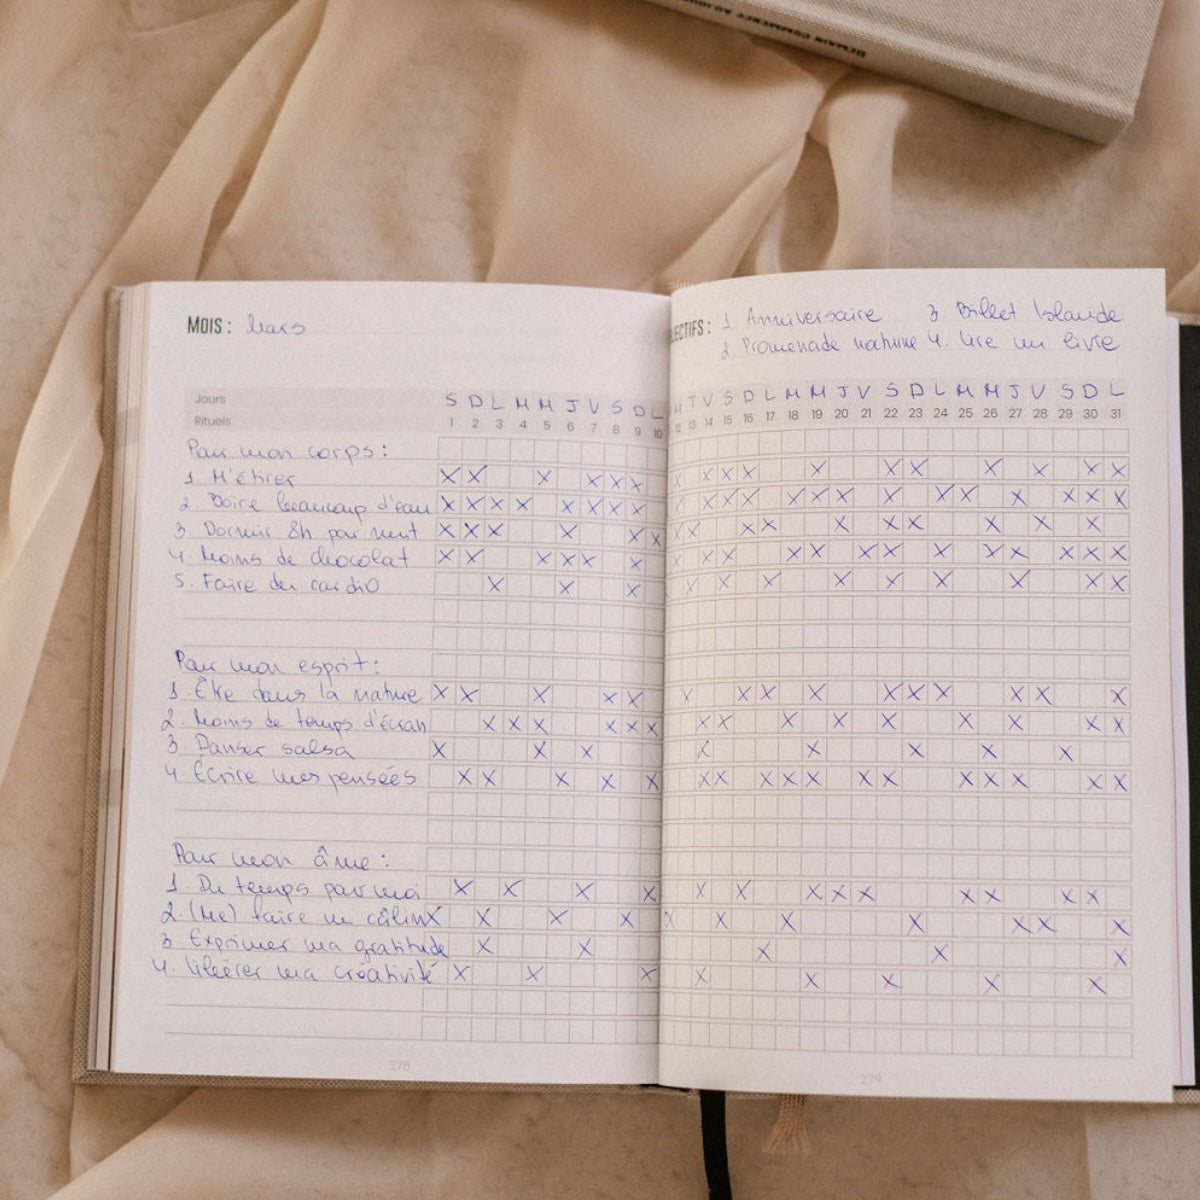 DEMAIN COMMENCE AUJOU
MOIS : Mars
JECTIFS : 1 Anniversaire 3. Billet Islande
2. Promenade nature 4. Lire un livre
Jours S D L M M J V S D L M J V S D L M M J V S D L M M J V S D L
Rituels 1 2 3 4 5 6 7 8 9 10 12 13 14 15 16 17 18 19 20 21 22 23 24 25 26 27 28 29 30 31
Pour mon corps :
1 M'étirer
2. Boire beaucoup d'eau
3. Dormir 8h par nuit
4. Moins de chocolat
5. Faire du cardio
Pour mon esprit :
1. Être dans la nature
2. Moins de temps d'écran
3. Danser salsa
4. Écrire mes pensées
Pour mon âme :
1. Du temps pour moi
2. (Me) faire un câlin
3 Exprimer ma gratitude
4. Libérer ma créativité
278
279